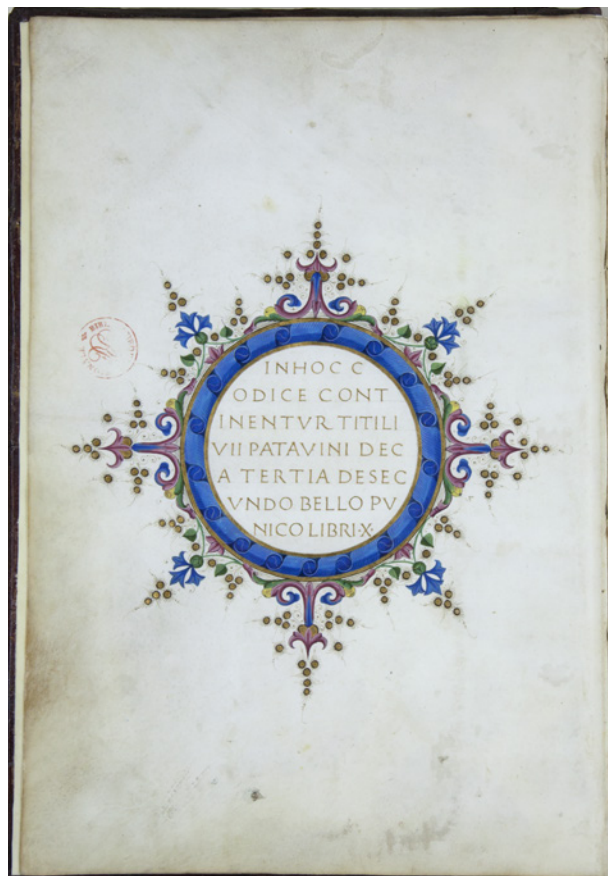 INHOC C
ODICE CONT
INENTVR TITI LI
VII PATAVINI DEC
A TERTIA DESEC
VNDO BELLO PV
NICO LIBRI·X·